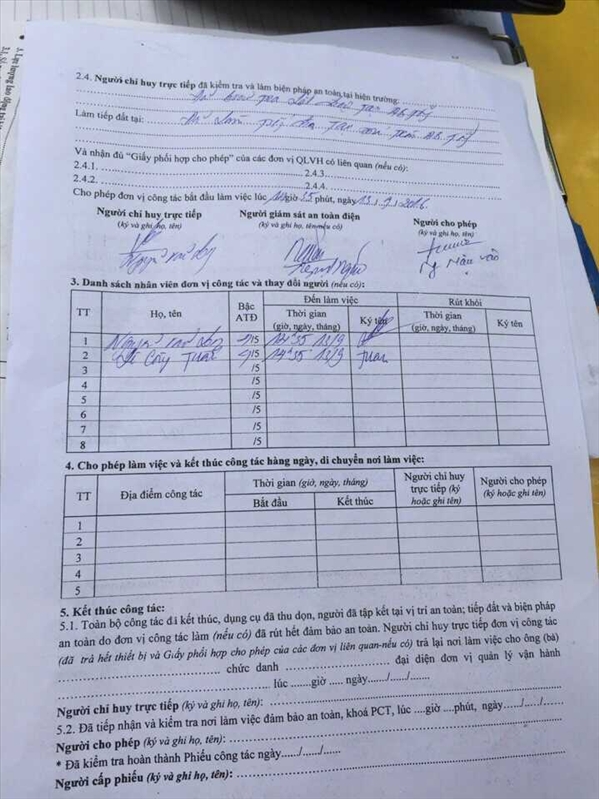 2.4. Người chỉ huy trực tiếp đã kiểm tra và làm biện pháp an toàn tại hiện trường:
Làm tiếp đất tại:
Và nhận đủ “Giấy phối hợp cho phép” của các đơn vị QLVH có liên quan (nếu có):
2.4.1. 2.4.3.
2.4.2. 2.4.4.
Cho phép đơn vị công tác bắt đầu làm việc lúc 14 giờ 35 phút, ngày 13/9/2016
Người chỉ huy trực tiếp Người giám sát an toàn điện Người cho phép
(ký và ghi họ, tên) (ký và ghi họ, tên nếu có) (ký và ghi họ, tên)
3. Danh sách nhân viên đơn vị công tác và thay đổi người (nếu có):
TT Họ, tên Bậc ATĐ Đến làm việc Rút khỏi
Thời gian (giờ, ngày, tháng) Ký tên Thời gian (giờ, ngày, tháng) Ký tên
1 /5 14h35 13/9
2 /5 14h35 13/9
3 /5
4 /5
5 /5
6 /5
7 /5
8 /5
4. Cho phép làm việc và kết thúc công tác hàng ngày, di chuyển nơi làm việc:
TT Địa điểm công tác Thời gian (giờ, ngày, tháng) Người chỉ huy trực tiếp (ký hoặc ghi tên) Người cho phép (ký hoặc ghi tên)
Bắt đầu Kết thúc
1
2
3
4
5
5. Kết thúc công tác:
5.1. Toàn bộ công tác đã kết thúc, dụng cụ đã thu dọn, người đã tập kết tại vị trí an toàn; tiếp đất và biện pháp
an toàn do đơn vị công tác làm (nếu có) đã rút hết đảm bảo an toàn. Người chỉ huy trực tiếp đơn vị công tác
(đã trả hết thiết bị và Giấy phối hợp cho phép của các đơn vị liên quan-nếu có) trả lại nơi làm việc cho ông (bà)
chức danh đại diện đơn vị quản lý vận hành
lúc ......giờ ..... ngày....../....../......
Người chỉ huy trực tiếp (ký và ghi họ, tên):
5.2. Đã tiếp nhận và kiểm tra nơi làm việc đảm bảo an toàn, khoá PCT, lúc ....giờ ....phút, ngày...../...../.....
Người cho phép (ký và ghi họ, tên):
* Đã kiểm tra hoàn thành Phiếu công tác ngày...../...../.....
Người cấp phiếu (ký và ghi họ, tên):